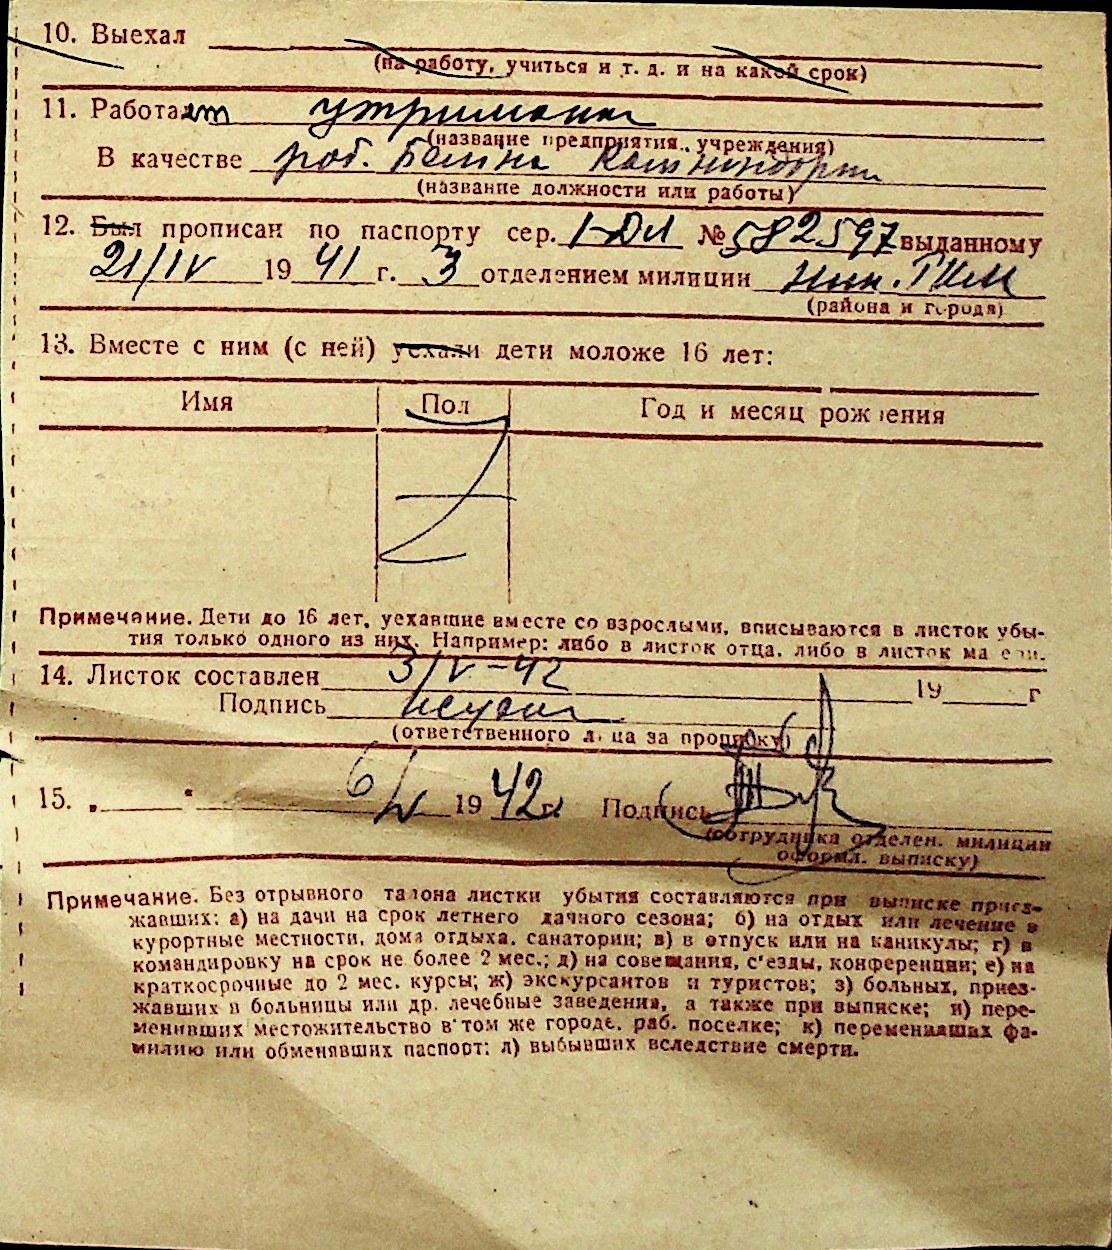 10. Выехал
(на работу, учиться и т. д. и на какой срок)
11. Работает утриманка
(название предприятия, учреждения)
В качестве роб.
(название должности или работы)
12. Был прописан по паспорту сер. I-ДЛ № 582597 выданному
21/IV 1941 г. 3 отделением милиции
(района и города)
13. Вместе с ним (с ней) уехали дети моложе 16 лет:
Имя Пол Год и месяц рождения
Примечание. Дети до 16 лет, уехавшие вместе со взрослыми, вписываются в листок убы-
тия только одного из них. Например: либо в листок отца, либо в листок матери.
14. Листок составлен 3/V-42 19 г
Подпись
(ответственного лица за прописку)
15. „ “ 6/V 1942 г. Подпись
(сотрудника отделен. милиции
оформл. выписку)
Примечание. Без отрывного талона листки убытия составляются при выписке приез-
жавших: а) на дачи на срок летнего дачного сезона; б) на отдых или лечение в
курортные местности, дома отдыха, санатории; в) в отпуск или на каникулы; г) в
командировку на срок не более 2 мес.; д) на совещания, с'езды, конференции; е) на
краткосрочные до 2 мес. курсы; ж) экскурсантов и туристов; з) больных, приез-
жавших в больницы или др. лечебные заведения, а также при выписке; и) пере-
менивших местожительство в том же городе, раб. поселке; к) переменивших фа-
милию или обменявших паспорт; л) выбывших вследствие смерти.